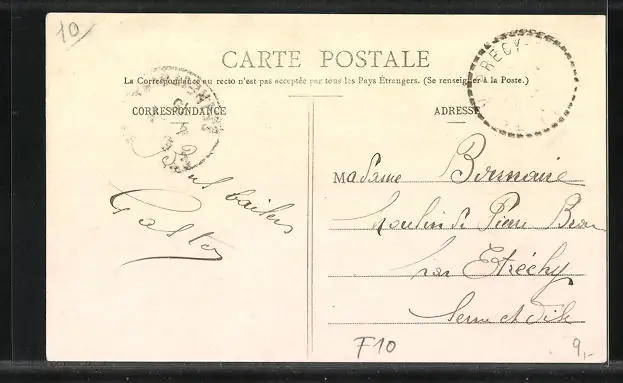 10
CARTE POSTALE
La Correspondance au recto n'est pas acceptée par tous les Pays Étrangers. (Se renseigner à la Poste.)
CORRESPONDANCE
ADRESSE
RECY
baisers
Gaston
Madame
Moulin de Pierre
par Etréchy
Seine et Oise
F10
9,-